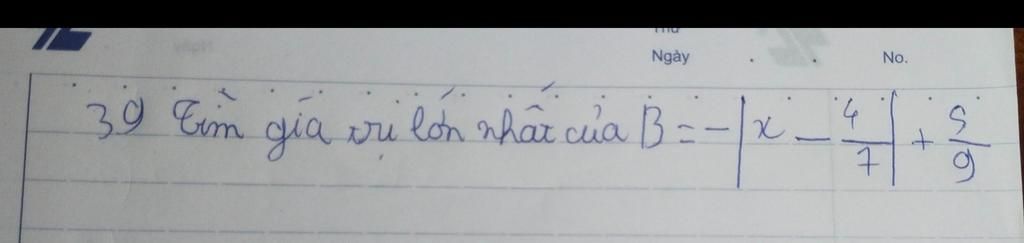 Thứ
Ngày
No.
39 Tìm giá trị lớn nhất của B = - | x - 4/7 | + 5/9